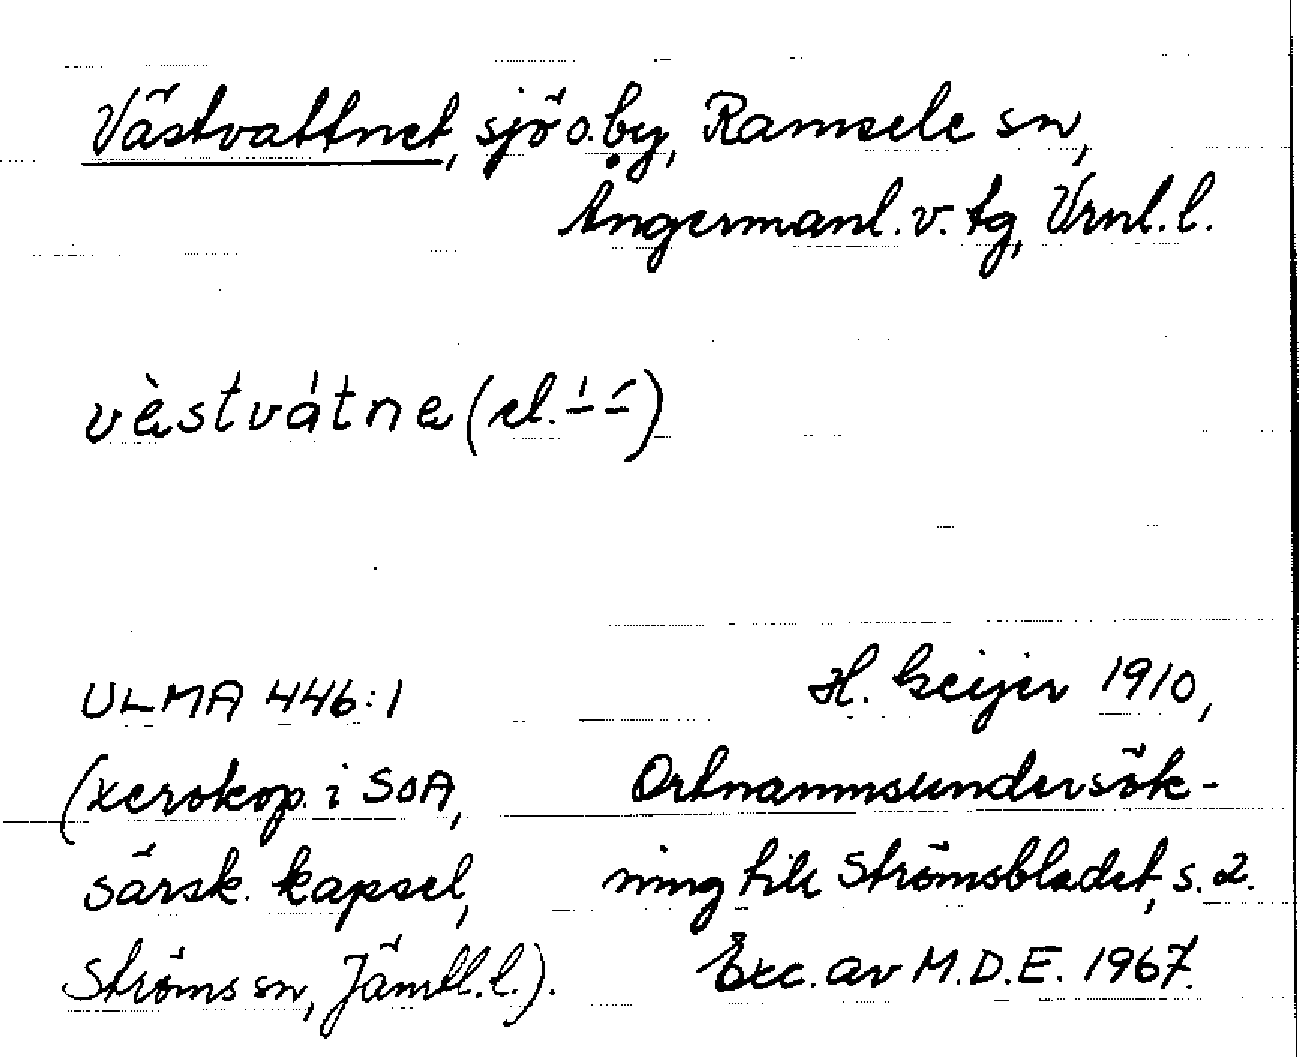 Västvattnet, sjö o. by, Ramsele sn,
Ångermanl. v. tg, Vrnl. l.
vèstvátne (el. –́ –́)
ULMA 446:1
(xerokop. i SOA,
särsk. kapsel,
Ströms sn, Jämtl. l.).
H. Geijer 1910,
Ortnamnsundersök-
ning till Strömsbladet, s. 2.
Exc. av M.D.E. 1967.